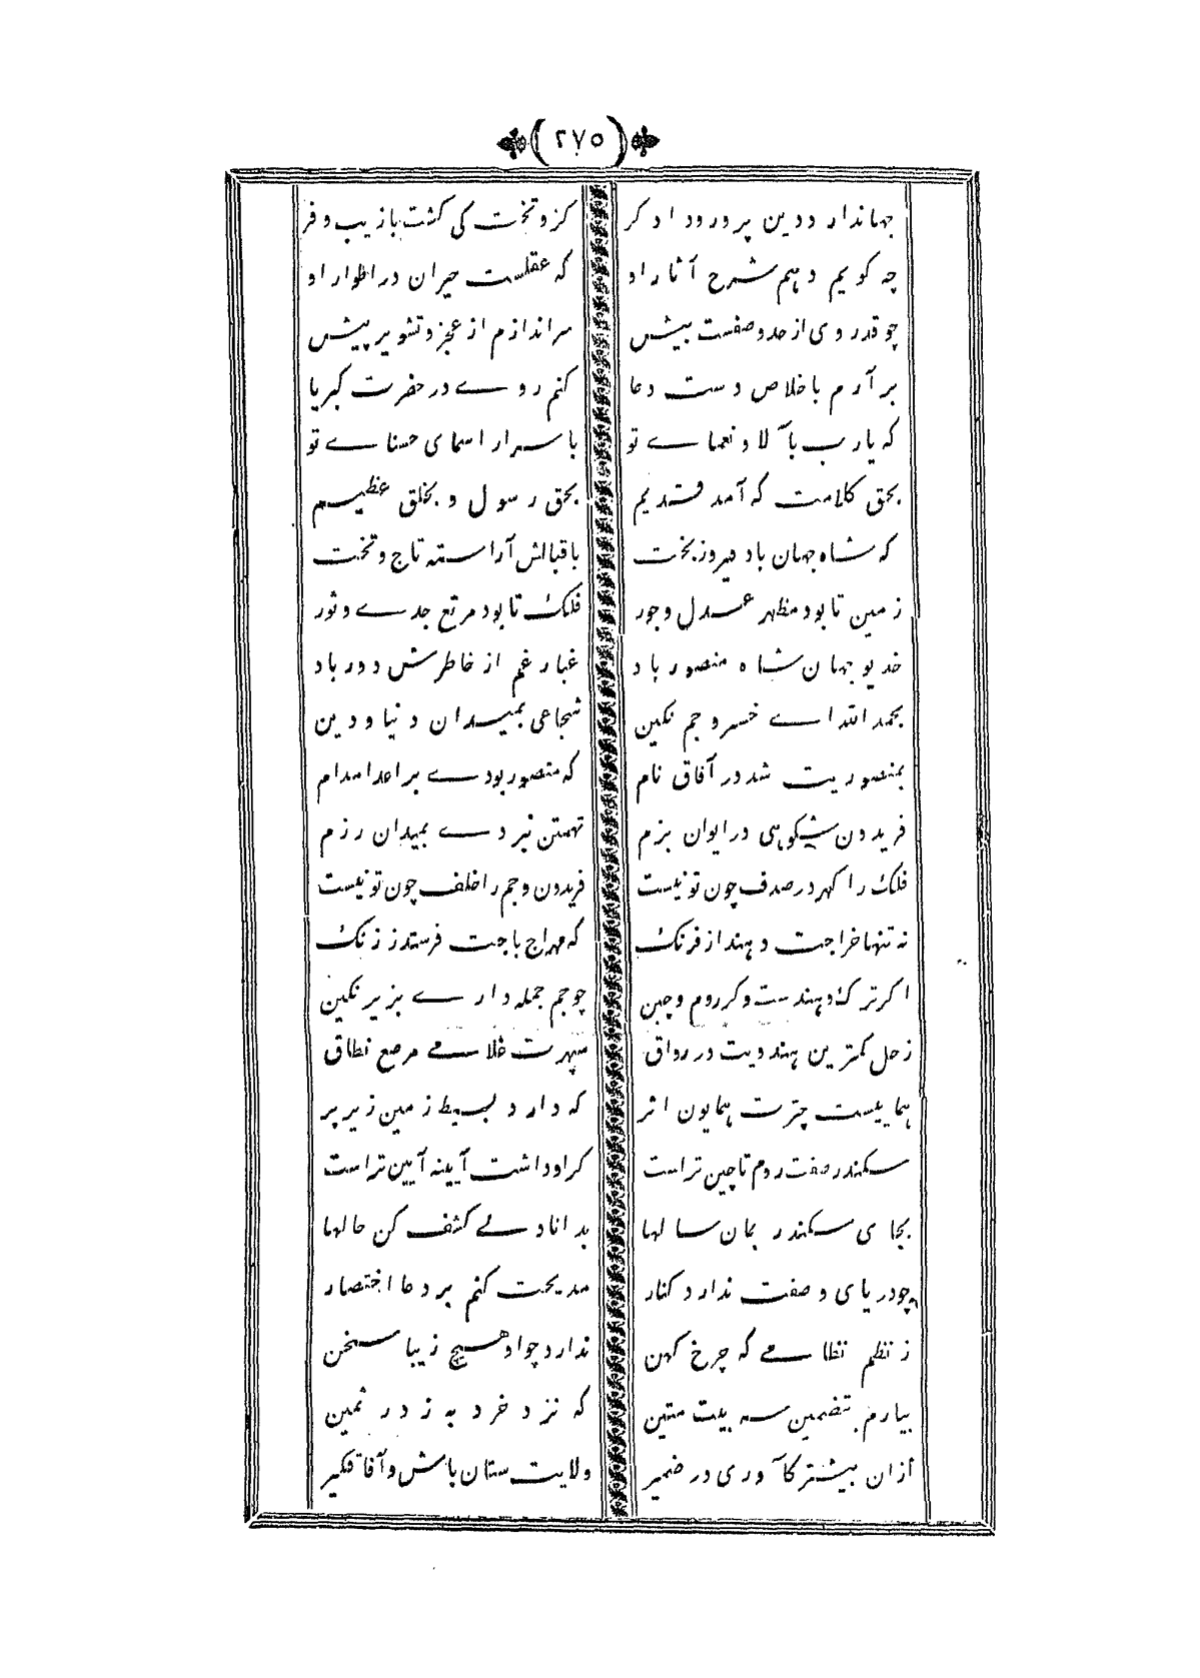 (۲۷۵)
جهاندار و دین پرور و دادگر کزو تخت کی گشت با زیب و فر
چه گویم دهم شرح آثار او که عقلست حیران در اطوار او
چو قدر وی از حد و صفست بیش سر اندازم از عجز و تشویر پیش
برآرم باخلاص دست دعا کنم روے در حضرت کبریا
که یارب بآلا و نعماے تو باسرار اسمای حسناے تو
بحق کلامت که آمد قدیم بحق رسول و بخلق عظیم
که شاه جهان باد فیروز بخت باقبالش آراسته تاج و تخت
زمین تا بود مظهر عدل و جور فلک تا بود مرتع جدے و ثور
خدیو جهان شاه منصور باد غبار غم از خاطرش دور باد
بحمد الله اے خسرو جم نگین شجاعی بمیدان دنیا و دین
بمنصوریت شد در آفاق نام که منصور بودے بر اعدا مدام
فریدون شکوهی در ایوان بزم تهمتن نبردے بمیدان رزم
فلک را گهر در صدف چون تو نیست فریدون و جم را خلف چون تو نیست
نه تنها خراجت دهند از فرنگ که مهراج باجت فرستد ز زنگ
اگر ترک و هندست و گر روم و چین چو جم جمله دارے بزیر نگین
زحل کمترین هندویت در رواق سپهرت غلامے مرصع نطاق
هماییست چترت همایون اثر که دارد بسیط زمین زیر پر
سکندر صفت روم تا چین تراست گر او داشت آیینه آیین تراست
بجای سکندر بمان سالها بدانادلے کشف کن حالها
چو دریای وصفت ندارد کنار مدیحت کنم بر دعا اختصار
ز نظم نظامے که چرخ کهن ندارد چو او هیچ زیبا سخن
بیارم بتضمین سه بیت متین که نزد خرد به ز در ثمین
ازان بیشتر کآوری در ضمیر ولایت ستان باش و آفاق گیر